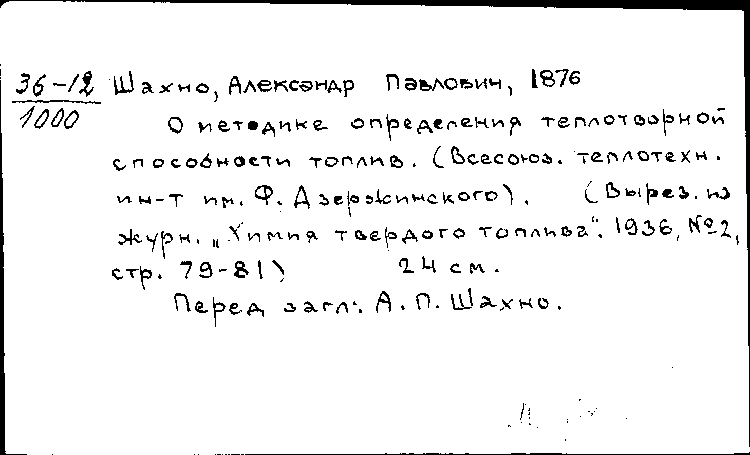 36-12 Шахно, Александр Павлович, 1876
1000 О методике определения теплотворной
способности топлив. (Всесоюз. теплотехн.
ин-т им. Ф. Дзержинского). (Вырез. из
журн. „Химия твердого топлива". 1936, №2,
стр. 79-81) 24 см.
Перед загл.: А. П. Шахно.